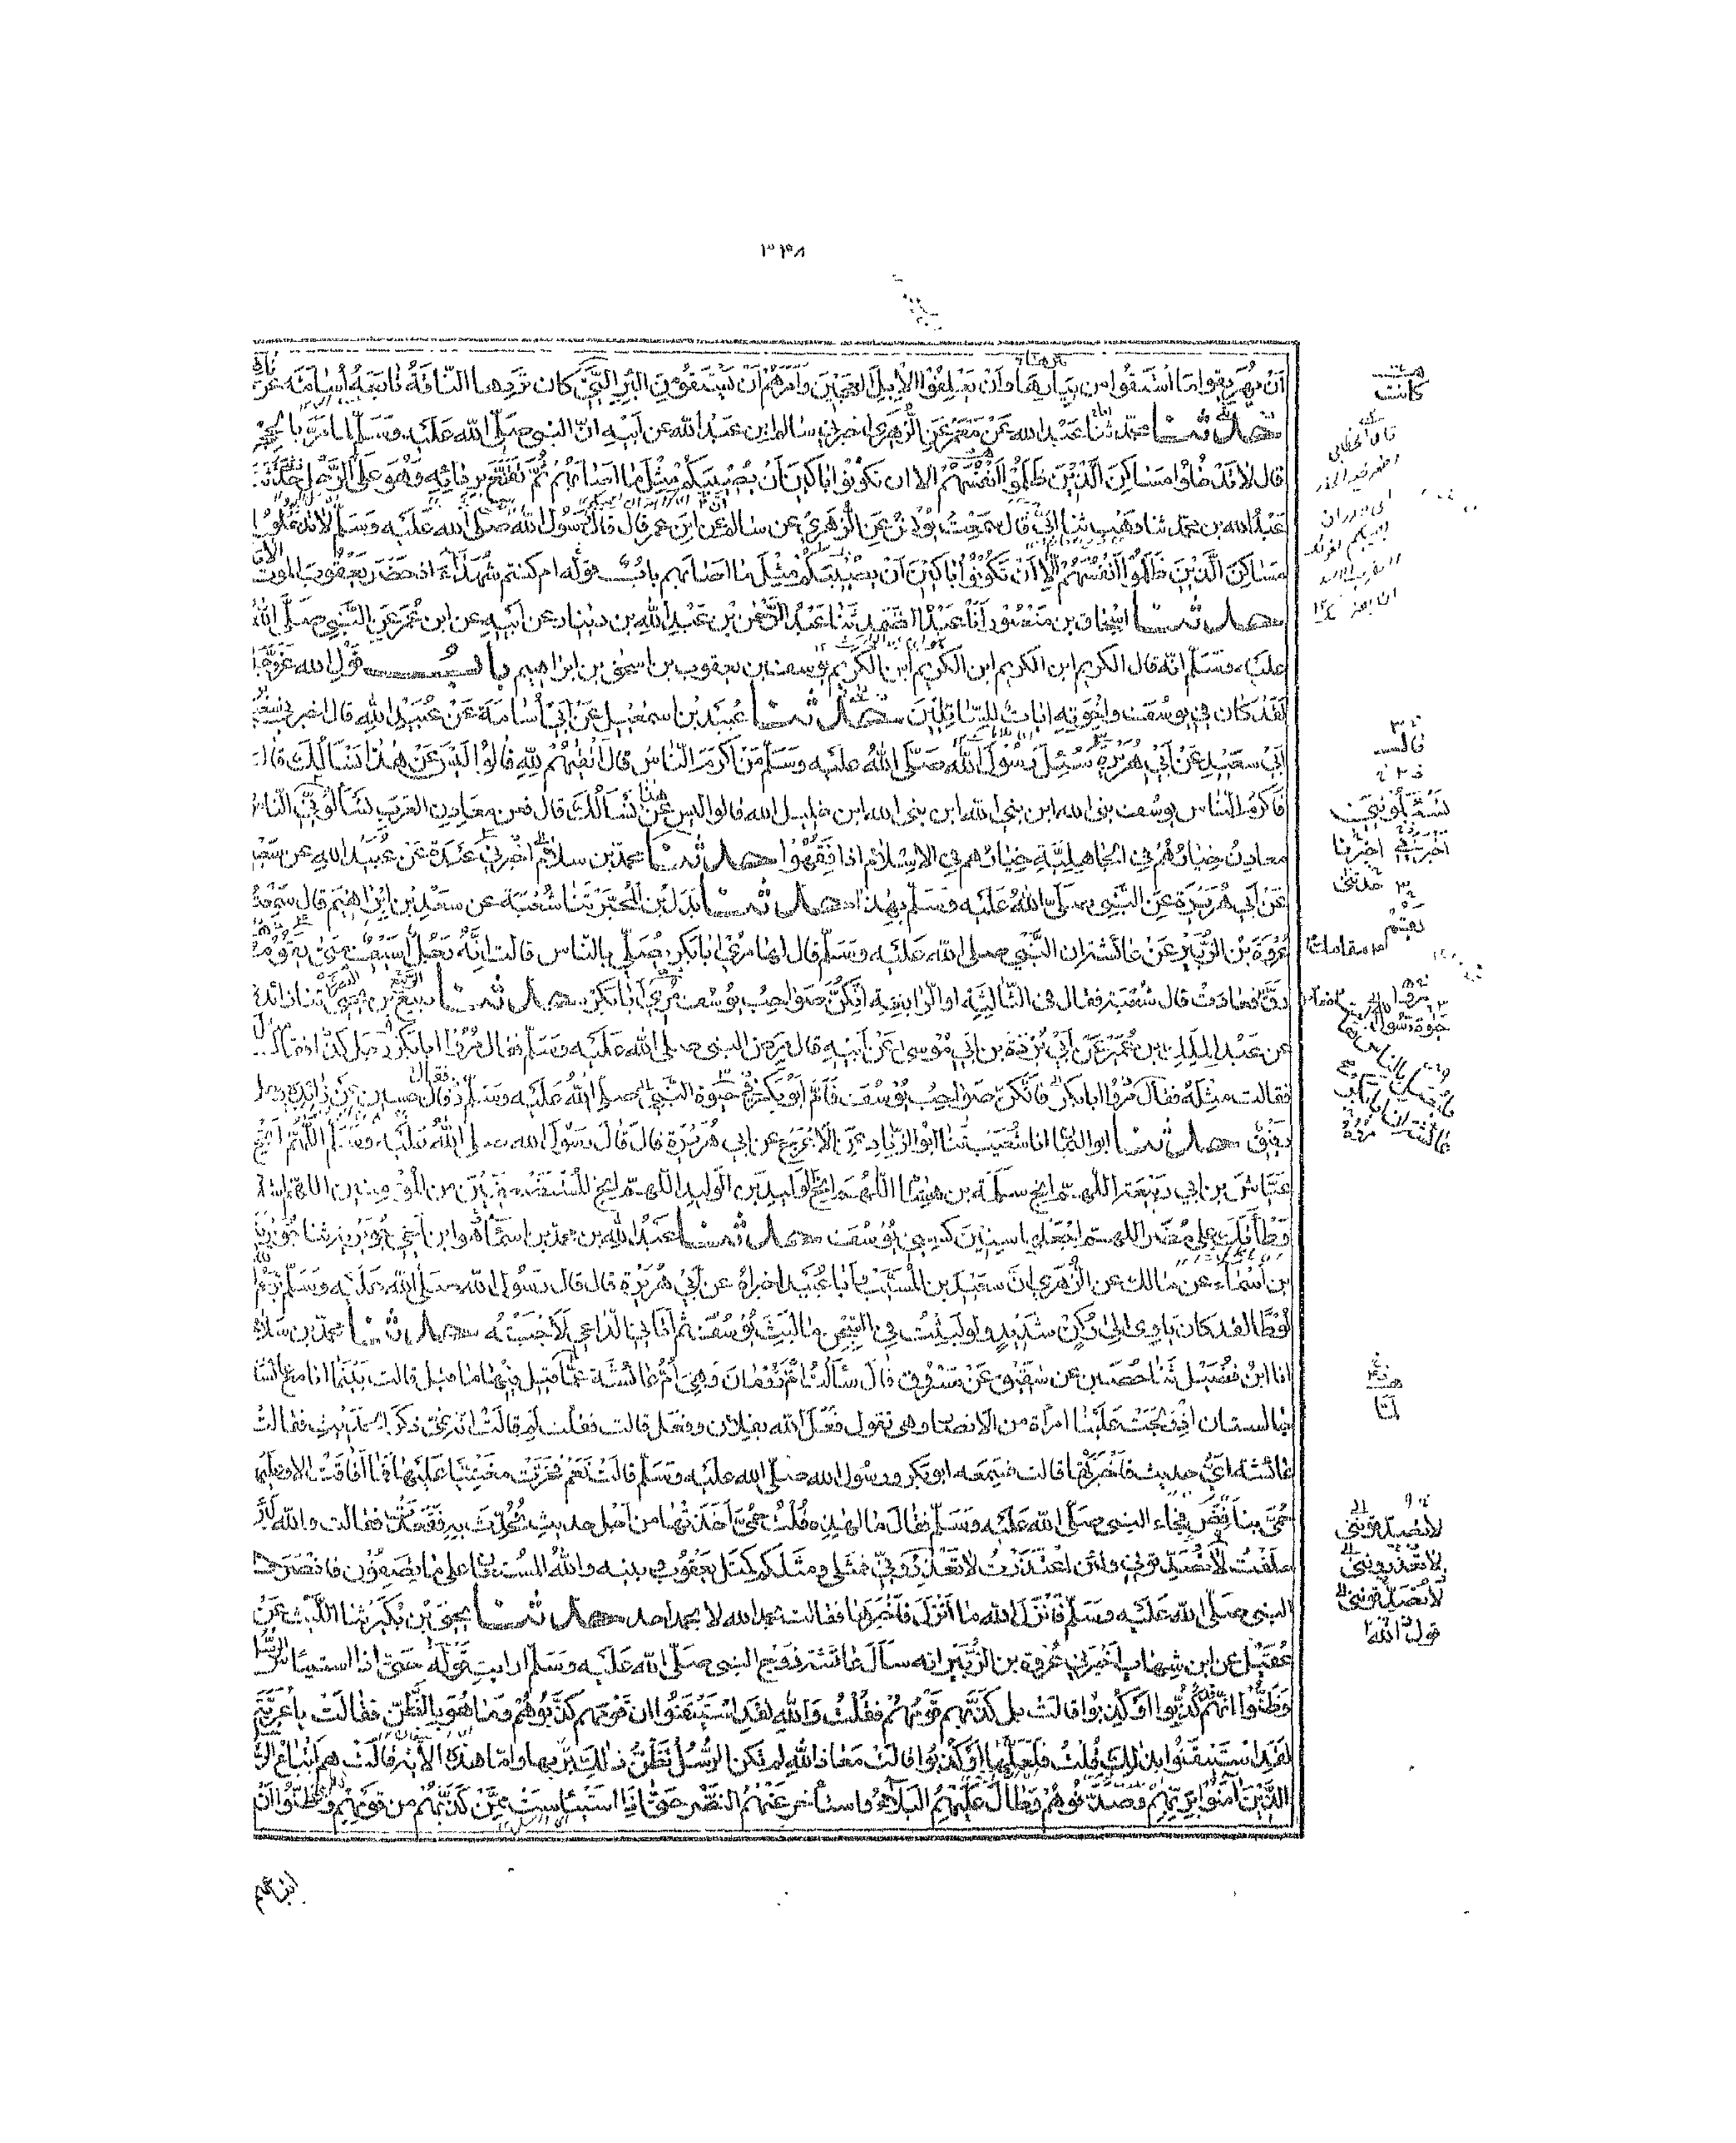 ٣٣٨
أن يهريقوا ما استقوا من بيارها وأن يعلفوا الإبل العجين وأمرهم أن يستقوا من البئر التي كان تردها الناقة تابعه أسامة عن
حدثنا محمد ثنا عبد الله عن معمر عن الزهري أخبرني سالم ابن عبد الله عن أبيه ان النبي صلى الله عليه وسلم لما مر بالحجر
قال لا تدخلوا مساكن الذين ظلموا أنفسهم الا ان تكونوا باكين أن يصيبكم مثل ما اصابهم ثم تقنع بردائه وهو على الرحل حدثنا
عبد الله بن محمد ثنا وهب ثنا أبي قال سمعت يونس عن الزهري عن سالم عن ابن عمر قال قال رسول الله صلى الله عليه وسلم لا تدخلوا
مساكن الذين ظلموا أنفسهم إلا أن تكونوا باكين أن يصيبكم مثل ما اصابهم باب قوله ام كنتم شهداء اذ حضر يعقوب الموت
حدثنا إسحاق بن منصور أنا عبد الصمد ثنا عبد الرحمن بن عبد الله بن دينار عن أبيه عن ابن عمر عن النبي صلى الله
عليه وسلم انه قال الكريم ابن الكريم ابن الكريم ابن الكريم يوسف بن يعقوب بن اسحق بن ابراهيم باب قول الله عز وجل
لقد كان في يوسف وإخوته ايات للسائلين حدثنا عبيد بن اسمعيل عن أبي أسامة عن عبيد الله قال اخبرني سعيد
أبي سعيد عن أبي هريرة سئل رسول الله صلى الله عليه وسلم من أكرم الناس قال أتقاهم لله قالوا ليس عن هذا نسألك قال
فأكرم الناس يوسف نبي الله ابن نبي الله ابن نبي الله ابن خليل الله قالوا ليس عن هذا نسألك قال فعن معادن العرب تسألوني الناس
معادن خيارهم في الجاهلية خيارهم في الاسلام اذا فقهوا حدثنا محمد بن سلام أخبرني عبدة عن عبيد الله عن سعيد
عن أبي هريرة عن النبي صلى الله عليه وسلم بهذا حدثنا بدل بن المحبر ثنا شعبة عن سعد بن إبراهيم قال سمعت
عروة بن الزبير عن عائشة ان النبي صلى الله عليه وسلم قال لها مري ابا بكر يصلي بالناس قالت إنه رجل أسيف متى يقم
رق فعاد فعادت قال شعبة فقال في الثالثة او الرابعة إنكن صواحب يوسف مري أبا بكر حدثنا ربيع بن يحيى ثنا زائدة
عن عبد الملك بن عمير عن أبي بردة بن أبي موسى عن أبيه قال مرض النبي صلى الله عليه وسلم فقال مروا ابا بكر رجل كذا فقال
فقالت مثله فقال مروا ابا بكر فانكن صواحب يوسف فأم أبو بكر في حيوة النبي صلى الله عليه وسلم وقال حسين عن زائدة رجل
رقيق حدثنا ابو اليمان انا شعيب ثنا ابو الزناد عن الاعرج عن ابي هريرة قال قال رسول الله صلى الله عليه وسلم اللهم أنج
عياش بن ابي ربيعة اللهم انج سلمة بن هشام اللهم انج الوليد بن الوليد اللهم انج المستضعفين من المؤمنين اللهم اشدد
وطأتك على مضر اللهم اجعلها سنين كسني يوسف حدثنا عبد الله بن محمد بن اسماء هو ابن أخي جويرية ثنا جويرية
ابن أسماء عن مالك عن الزهري ان سعيد بن المسيب وأبا عبيد اخبراه عن أبي هريرة قال قال رسول الله صلى الله عليه وسلم يرحم الله
لوطا لقد كان ياوي الى ركن شديد ولو لبثت في السجن ما لبث يوسف ثم أتاني الداعي لأجبته حدثنا محمد بن سلام
انا ابن فضيل ثنا حصين عن شقيق عن مسروق قال سألت أم رومان وهي أم عائشة عما قيل فيها ما قيل قالت بينما انا مع عائشة
جالستان إذ ولجت علينا امرأة من الانصار وهي تقول فعل الله بفلان وفعل قالت فقلت لم قالت انه نمى ذكر الحديث فقالت
عائشة أي حديث فأخبرتها قالت فسمعه ابو بكر ورسول الله صلى الله عليه وسلم قالت نعم فخرت مغشيا عليها فما أفاقت الا وعليها
حمى بنافض فجاء النبي صلى الله عليه وسلم فقال ما لهذه قلت حمى أخذتها من أجل حديث تحدث به فقعدت فقالت والله لئن
حلفت لا تصدقوني ولئن اعتذرت لا تعذروني فمثلي ومثلكم كمثل يعقوب وبنيه والله المستعان على ما تصفون فانصرف
النبي صلى الله عليه وسلم فأنزل الله ما أنزل فأخبرها فقالت بحمد الله لا بحمد احد حدثنا يحيى بن بكير ثنا الليث عن
عقيل عن ابن شهاب أخبرني عروة بن الزبير انه سأل عائشة زوج النبي صلى الله عليه وسلم ارايت قوله حتى اذا استيأس الرسل
وظنوا انهم كذبوا او كذبوا قالت بل كذبهم قومهم فقلت والله لقد استيقنوا ان قومهم كذبوهم وما هو بالظن فقالت يا عرية
لقد استيقنوا بذلك قلت فلعلها أو كذبوا قالت معاذ الله لم تكن الرسل تظن ذلك بربها واما هذه الآية قالت هم أتباع الرسل
الذين آمنوا بربهم وصدقوهم وطال عليهم البلاء واستأخر عنهم النصر حتى اذا استيأست ممن كذبهم من قومهم وظنوا أن
كانت
قال الخطابي
أخبرنا
حدثني
لما
لا تصدقونني
لا تعذرونني
لا تصدقونني
قول الله